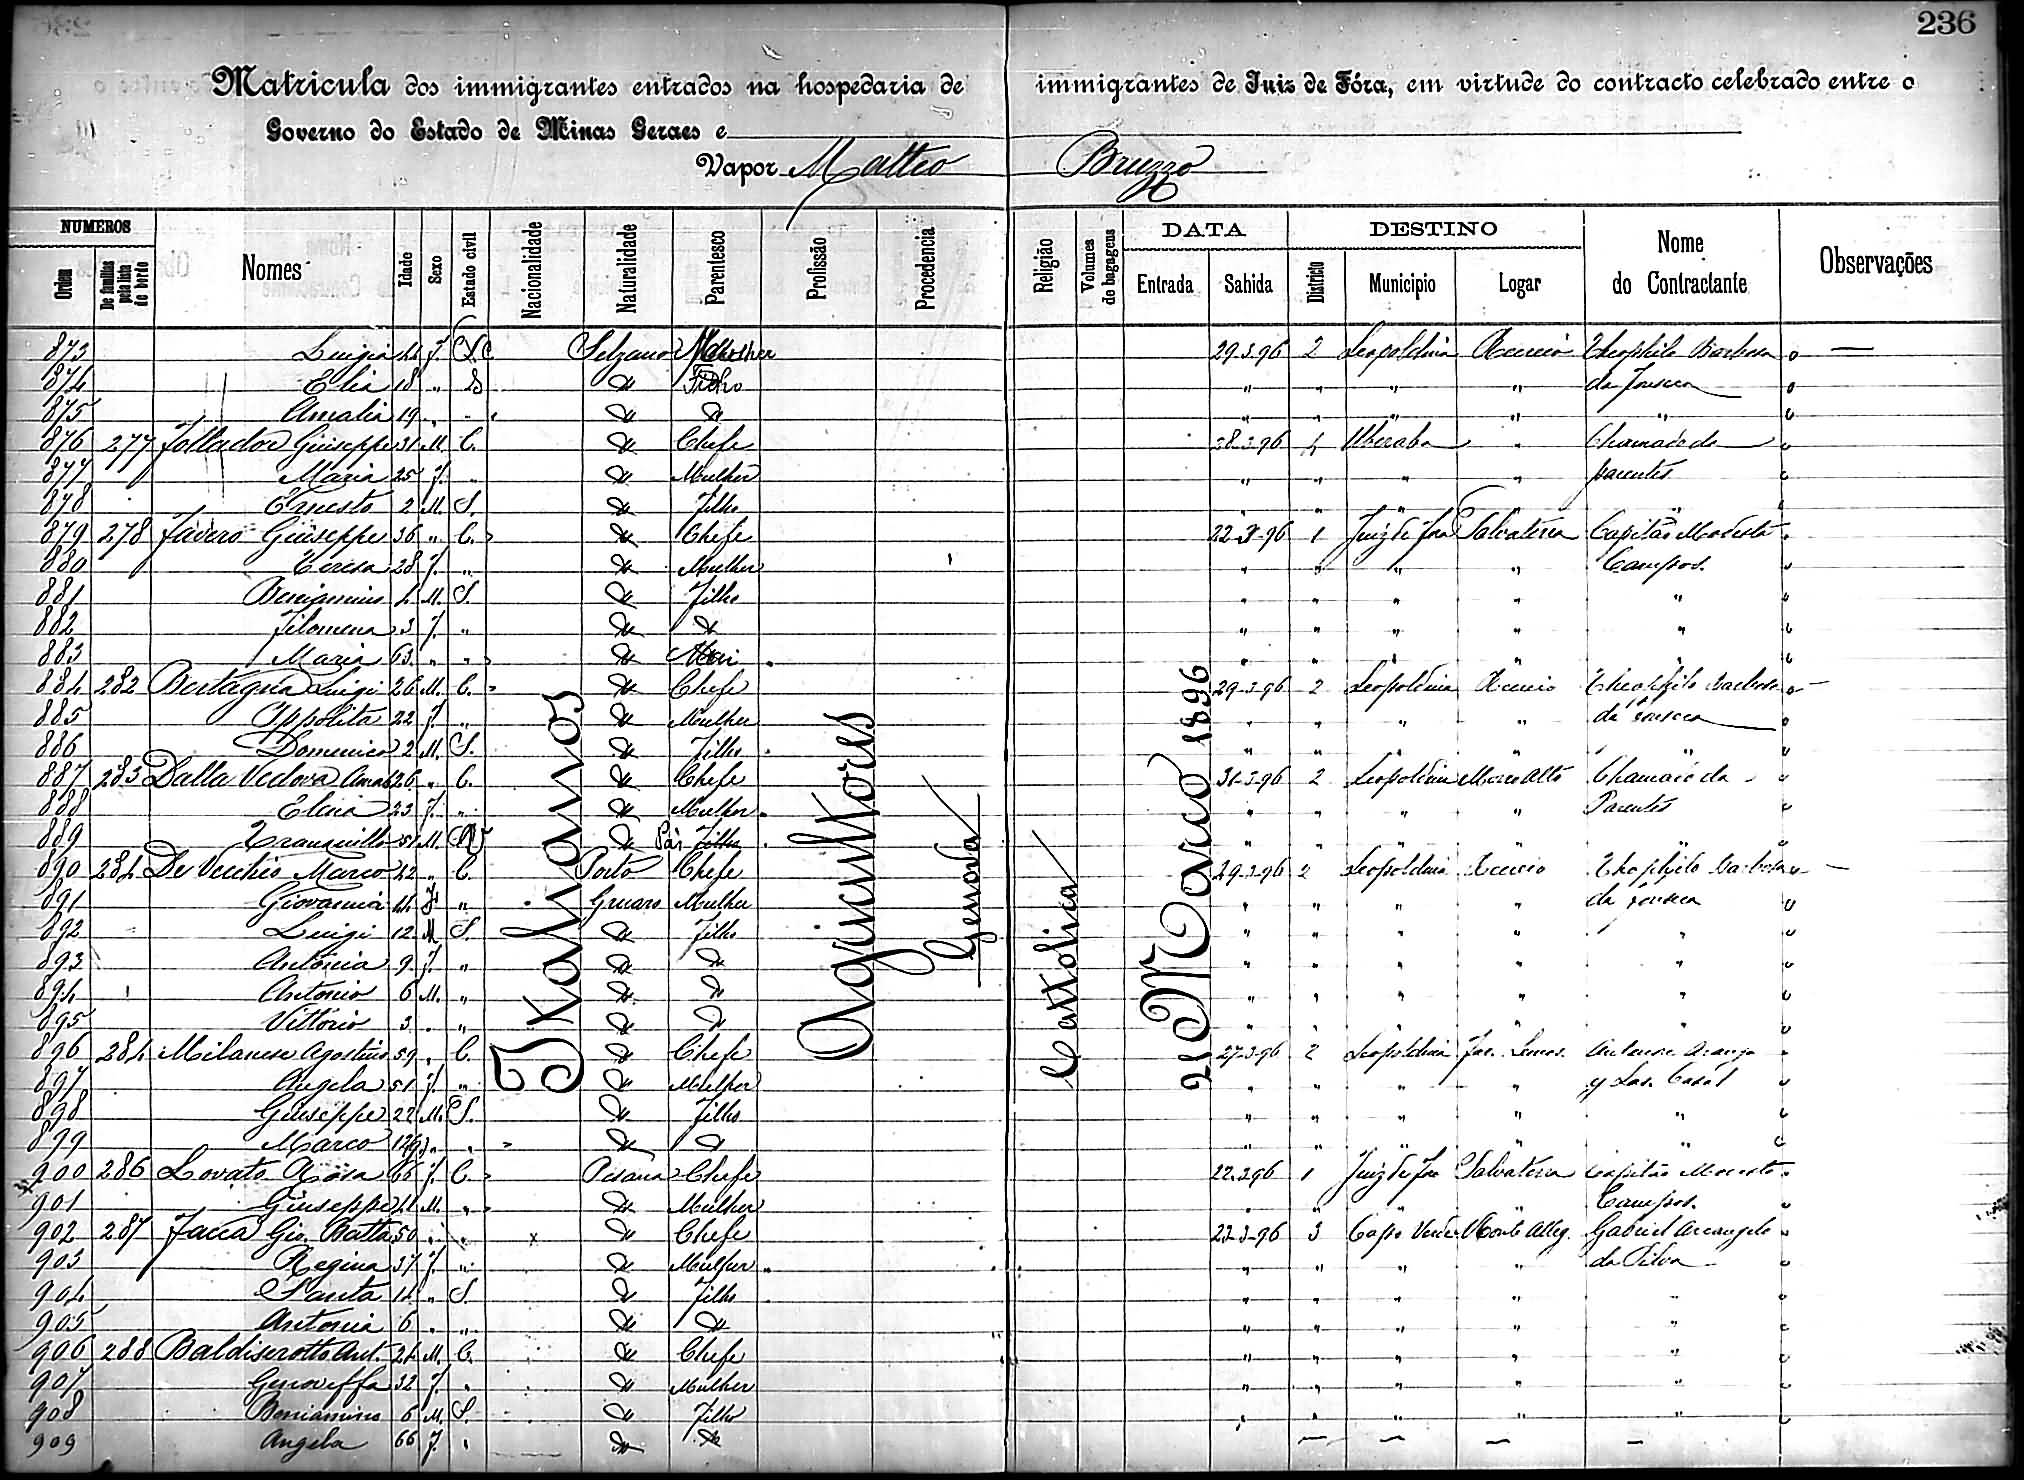 236
Matricula dos immigrantes entrados na hospedaria de immigrantes de Juiz de Fóra, em virtude do contracto celebrado entre o
Governo do Estado de Minas Geraes e
Vapor Matteo Bruzzo
NUMEROS DATA DESTINO
Ordem De familias pela lista de bordo Nomes Idade Sexo Estado civil Nacionalidade Naturalidade Parentesco Profissão Procedencia Religião Volumes de bagagens Entrada Sahida Districto Municipio Logar Nome do Contractante Observações
Italianos Agricultores Genova Cattolica 20 Março 1896
873 Luigia F. C Mulher 29-3-96 2 Leopoldina Recreio Theophilo Barbosa
874 Elia 18 " S Filho " " " " da Fonseca
875 Amalia 19 " " " " " "
876 277 Follador Giuseppe 31 M. C. Chefe 28-3-96 Uberaba " Chamado de
877 Maria 25 F. " Mulher " " " " parentes
878 Ernesto 2 M. S. Filho " " " " "
879 278 Favero Giuseppe 36 " C. Chefe 22-3-96 1 Juiz de Fora Salvaterra Capitão Modesto
880 Teresa 28 F. " Mulher " " " " Campos.
881 Beniamino 4 M. S. Filho " " " " "
882 Filomena 3 F. " " " " " "
883 Maria 63 " " Mãi " " " " "
884 282 Bertagna Luigi 26 M. C. Chefe 29-3-96 2 Leopoldina Recreio Theophilo Barbosa
885 Ippolita 22 F. " Mulher " " " " da Fonseca
886 Domenico 2 M. S. Filho " " " " "
887 283 Dalla Vedova 26 " C. Chefe 31-3-96 2 Leopoldina Morro Alto Chamado de
888 Elisa 23 F. " Mulher " " " " Parentes
889 Tranquillo 51 M. V Pai Filho " " " " "
890 284 De Vecchio Marco 42 " C Porto Chefe 29-3-96 2 Leopoldina Recreio Theophilo Barbosa
891 Giovanna 44 F " Gruaro Mulher " " " " da Fonseca
892 Luigi 12 M S. Filho " " " " "
893 Antonia 9 F. " " " " " "
894 Antonio 6 M. " " " " " "
895 Vittorio 3 " " " " " " "
896 284 Milanese Agostino 59 " C. Chefe 27-3-96 2 Leopoldina Antenor Araujo
897 Angela 51 F. " Mulher " " " "
898 Giuseppe 22 M. S. Filho " " " " "
899 Marco 12 " " " " " " "
900 286 Lovato Rosa 66 F. C. Chefe 22-3-96 1 Juiz de Fora Salvaterra Capitão Modesto
901 Giuseppe M. " Mulher " " " " Campos.
902 287 Facca Gio. Batta 50 " " Chefe 22-3-96 3 Cabo Verde Monte Alleg. Gabriel Arcangelo
903 Regina 37 F. " Mulher " " " " da Silva
904 Santa 14 " S. Filho " " " " "
905 Antonia 6 " " " " " " "
906 288 Baldiserotto Ant. 24 M. C. Chefe " " " " "
907 Genoveffa 32 F. " Mulher " " " " "
908 Beniamino 6 M. S. Filho " " " " "
909 Angela 66 F. "